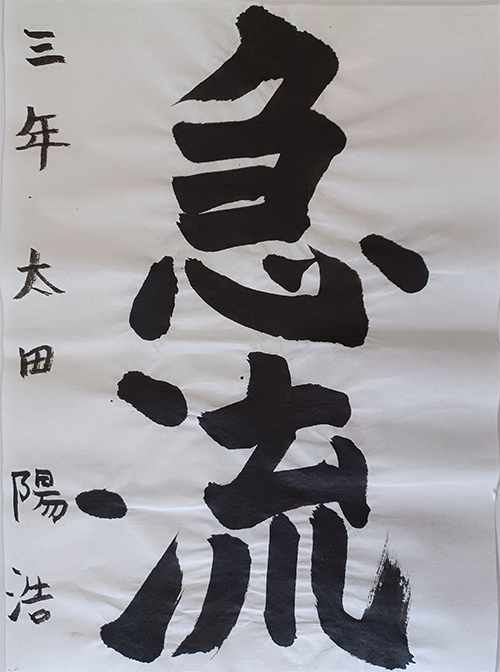 急流
三年 太田 陽浩